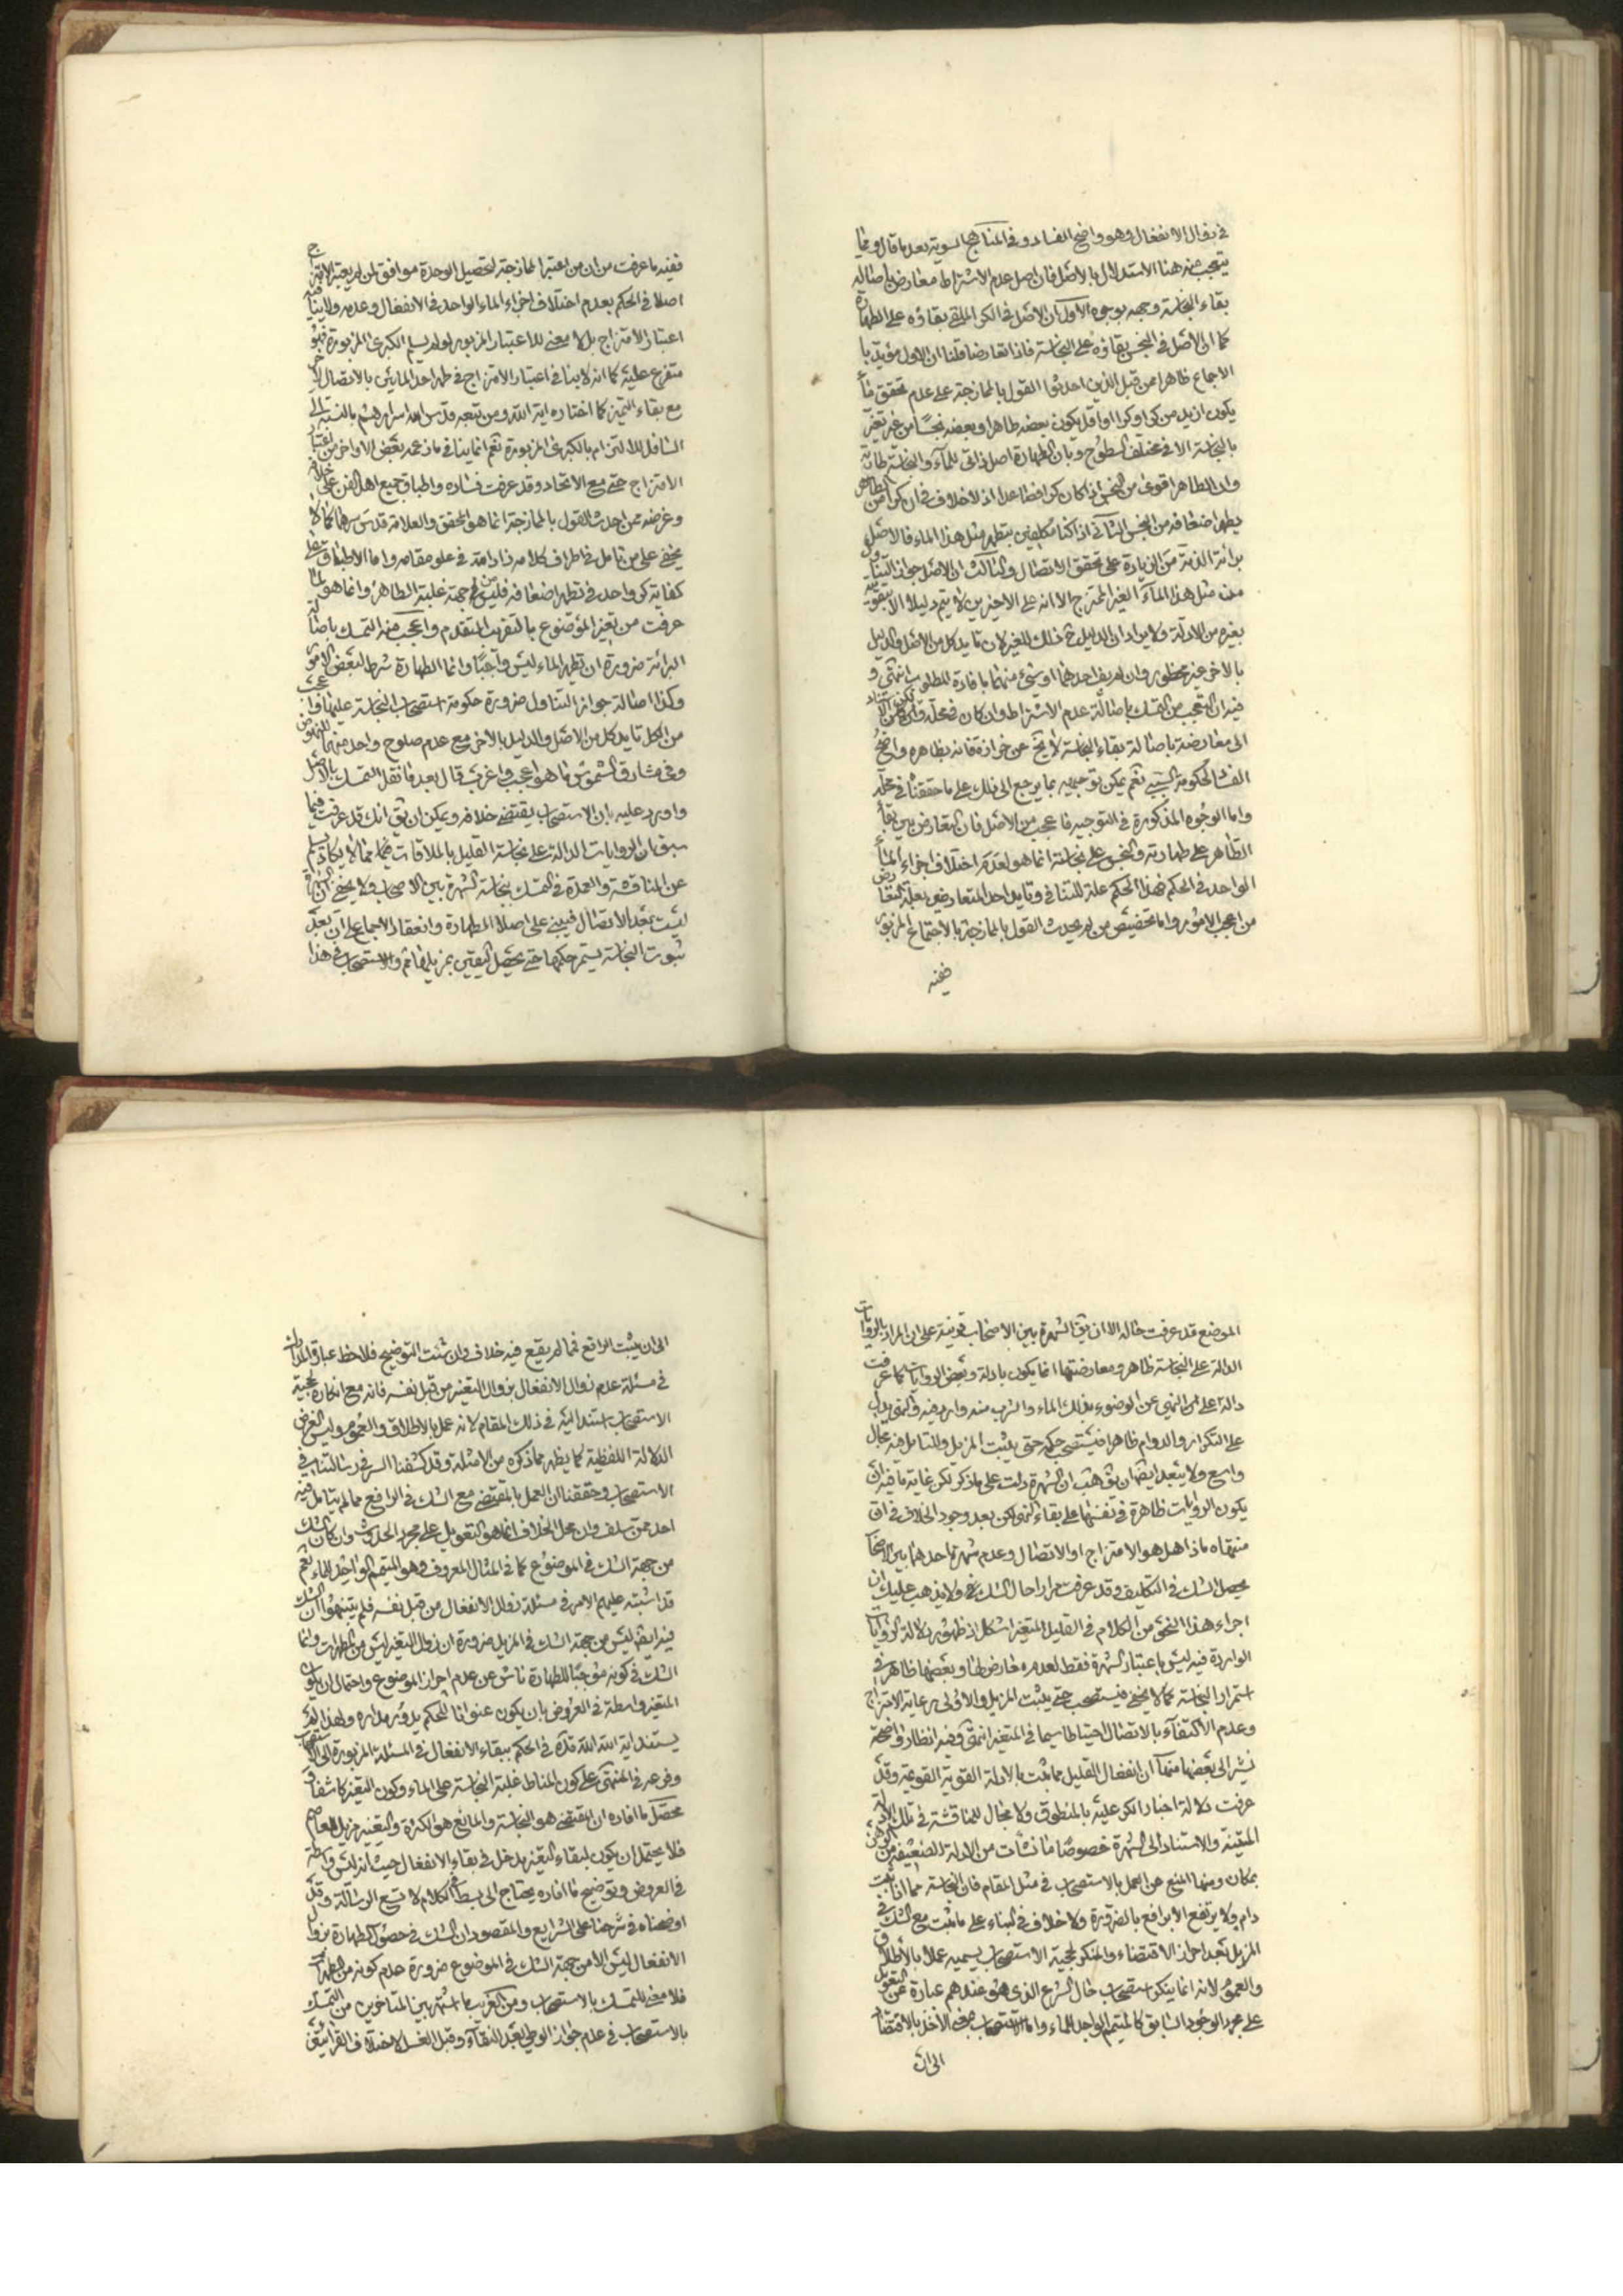 في زوال الانفعال وهو واضح الفساد وفي المناهج السوية بعد ما قال ومما
يتعجب منه هنا الاستدلال بالاصل فان اصل عدم الاشتراط معارض باصالة
بقاء النجاسة وجهه بوجوه الاول ان الاصل في الكر الملقى بقاؤه على الطهارة
كما ان الاصل في النجس بقاؤه على النجاسة فاذا تعارضا قلنا ان الاول مؤيد با
الاجماع ظاهرا من قبل الذين احدثوا القول بالممازجة على عدم تحقق ماء
يكون ازيد من كر او كرا او اقل يكون بعضه طاهرا وبعضه نجسا من غير تغير
بالنجاسة الا في مختلف السطوح وبان الطهارة اصل ذاتي للماء والنجاسة طارية
وان الطاهر اقوى من النجس اذا كان كرا فصاعدا اذ لا خلاف في ان كرا من الطاهر
يطهر اضعافه من النجس الثاني اذا كنا مكلفين بتطهير مثل هذا الماء فالاصل
برائة الذمة من الزيادة على تحقق الاتصال والثالث ان الاصل جواز التناول
من مثل هذا الماء الغير الممتزج الا انه على الاخيرين لا يتم دليلا الا بتقويته
بغيره من الادلة ولا يراد ان الدليل ح ذلك للغير لان تايد كل من الاصل والدليل
بالاخر غير محظور وان لم يف احدهما او شيء منهما بافادة المطلوب انتهى و
فيه ان التعجب من التمسك باصالة عدم الاشتراط وان كان في محله ولكن الاستناد
الى معارضته باصالة بقاء النجاسة لا يخ عن حزازة فانه بظاهره واضح
الفساد لحكومة السببي نعم يمكن توجيهه بما يرجع الى ذلك على ما حققنا في محله
واما الوجوه المذكورة في التوجيه فاعجب من الاصل فان التعارض بين بقاء
الطاهر على طهارته والنجس على نجاسته انما هو لعدم اختلاف اجزاء الماء
الواحد في الحكم فهذا الحكم علة للتنافي وتايد احد المتعارضين بعلة التعارض
من اعجب الامور واما تخصيص من لم يحدث القول بالممازجة بالاجتماع المزبور
ففيه
ففيه ما عرفت من ان من اعتبر الممازجة لتحصيل الوحدة موافق لمن لم يعتبر الامتزاج
اصلا في الحكم بعدم اختلاف اجزاء الماء الواحد في الانفعال وعدمه ولا ينافيه
اعتبار الامتزاج بل لا معنى للاعتبار المزبور لو لم يسلم الكبرى المزبورة فهو
متفرع عليه كما انه لا ينافي اعتبار الامتزاج في طهر احد المائين بالاتصال
مع بقاء التميز كما اختاره اية الله ومن تبعه قدس الله اسرارهم بالنسبة الى
السافل للالتزام بالكبرى المزبورة نعم انما ينافي ما زعمه بعض الاواخر من اعتبار
الامتزاج حتى مع الاتحاد وقد عرفت فساده واطباق جميع اهل الفن على خلافه
وغرضه ممن احدث القول بالممازجة انما هو المحقق والعلامة قدس سرهما كما لا
يخفى على من تامل في اطراف كلامه زاد الله في علو مقامه واما الاطباق على
كفاية كر واحد في تطهير اضعافه فليس من جهة غلبة الطاهر وانما هو لما
عرفت من تغير الموضوع بالتقريب المتقدم واعجب منه التمسك باصالة
البرائة ضرورة ان تطهير الماء ليس واجبا وانما الطهارة شرط لبعض الامور
وكذا اصالة جواز التناول ضرورة حكومة استصحاب النجاسة عليها واعجب
من الكل تايد كل من الاصل والدليل بالاخر مع عدم صلوح واحد منهما للنهوض
وفي مشارق الشموس ما هو اعجب واغرب قال بعد ما نقل التمسك بالاصل
واورد عليه بان الاستصحاب يقتضي خلافه ويمكن ان يق انك قد عرفت فيما
سبق ان الروايات الدالة على نجاسة القليل بالملاقات مما لا يكاد يسلم
عن المناقشة والعمدة في التمسك بنجاسة الشهرة بين الاصحاب ولا يخفى
ليست بعد الاتصال فيبنى على اصل الطهارة وانعقاد الاجماع على ان بعد
ثبوت النجاسة يستمر حكمها حتى يحصل اليقين بمزيلها ثم والاستصحاب في هذا
الموضع قد عرفت حاله الا ان يق الشهرة بين الاصحاب قرينة على ان المراد بالروايات
الدالة على النجاسة ظاهر ومعارضتها انما يكون بادلة وبعض الروايات كما عرفت
دالة على النهي عن الوضوء بذلك الماء والشرب منه وارد فيه والنهي يدل
على التكرار والدوام ظاهرا فيستصحب حكمه حتى يثبت المزيل وللتامل فيه مجال
واسع ولا يبعد ايضا ان يق هب ان الشهرة دلت على ما ذكر لكن غاية ما فيه ان
يكون الروايات ظاهرة في نفسها على بقاء النهي لكن بعد وجود الخلاف في ان
منتهاه ماذا هل هو الامتزاج او الاتصال وعدم شهرة احدهما بين الاصحاب
يحصل الشك في التكليف وقد عرفت مرارا حال الشك فيه ولا يذهب عليك ان
اجراء هذا النحو من الكلام في القليل المتغير اشكل اذ ظهور دلالة الروايات
الواردة فيه ليس باعتبار الشهرة فقط لعدم معارض لها وبعضها ظاهر في
استمرار النجاسة كما لا يخفى فيستصحب حتى يثبت المزيل والاولى رعاية الامتزاج
وعدم الاكتفاء بالاتصال احتياطا سيما في المتغير انتهى وفيه انظار واضحة
نشير الى بعضها منها ان انفعال القليل مما ثبت بالادلة القوية القويمة وقد
عرفت دلالة اخبار الكر عليه بالمنطوق ولا مجال للمناقشة في تلك الادلة
المتقنة والاستناد الى الشهرة خصوصا ما نشات من الادلة الضعيفة من الوهن
بمكان ومنها المنع عن العمل بالاستصحاب في مثل المقام فان النجاسة مما اذا ثبت
دام ولا يرتفع الا برافع بالضرورة ولا خلاف في البناء على ما ثبت مع الشك في
المزيل بعد احراز الاقتضاء والمنكر لحجية الاستصحاب يسميه عملا بالاطلاق
والعموم لانه انما ينكر استصحاب حال الشرع الذي هو عندهم عبارة عن التعويل
على مجرد الوجود السابق كالمتيمم الواجد للماء واما الاستصحاب بمعنى الاخذ بالاقتضاء
الى ان
الى ان يثبت الرافع فمما لم يقع فيه خلاف وان شئت التوضيح فلاحظ عبارة المدارك
في مسئلة عدم زوال الانفعال بزوال التغير من قبل نفسه فانه مع انكاره لحجية
الاستصحاب استند اليه في ذلك المقام لانه عمل بالاطلاق والعموم وليس الغرض
الدلالة اللفظية كما يظهر مما ذكره من الامثلة وقد كشفنا السر في رسالتنا في
الاستصحاب وحققنا ان العمل بالمقتضي مع الشك في الرافع مما لم يتامل فيه
احد ممن سلف وان محل الخلاف انما هو التعويل على مجرد الحدوث وان كان الشك
من جهة الشك في الموضوع كما في المثال المعروف وهو المتيمم الواجد للماء نعم
قد اشتبه عليهم الامر في مسئلة زوال الانفعال من قبل نفسه فلم يتنبهوا ان الشك
فيه ايضا ليس من جهة الشك في المزيل ضرورة ان زوال التغير ليس من المطهرات وانما
الشك في كونه موجبا للطهارة ناش عن عدم احراز الموضوع واحتمال ان يكون
المتغير واسطة في العروض بان يكون عنوانا للحكم يدور مداره ولهذا لم
يستند اية الله قده في الحكم ببقاء الانفعال في المسئلة المزبورة الى الاستصحاب
وفرعه في المنتهى على كون المناط غلبة النجاسة على الماء وكون التغير كاشفا و
محصل ما افاده ان المقتضي هو النجاسة والمانع هو الكثرة والتغير مزيل للعاصم
فلا يحتمل ان يكون لبقاء التغير مدخل في بقاء الانفعال حيث انه ليس واسطة
في العروض وتوضيح ما افاده يحتاج الى بسط في الكلام لا تسع الرسالة وقد
اوضحناه في شرحنا على الشرايع والمقصود ان الشك في حصول الطهارة بزوال
الانفعال ليس الا من جهة الشك في الموضوع ضرورة عدم كونه من المطهرات
فلا معنى للتمسك بالاستصحاب ومن الغريب ما اشتهر بين المتاخرين من التمسك
بالاستصحاب في عدم جواز الوطي بعد النقاء وقبل الغسل لاختلاف القرائتين